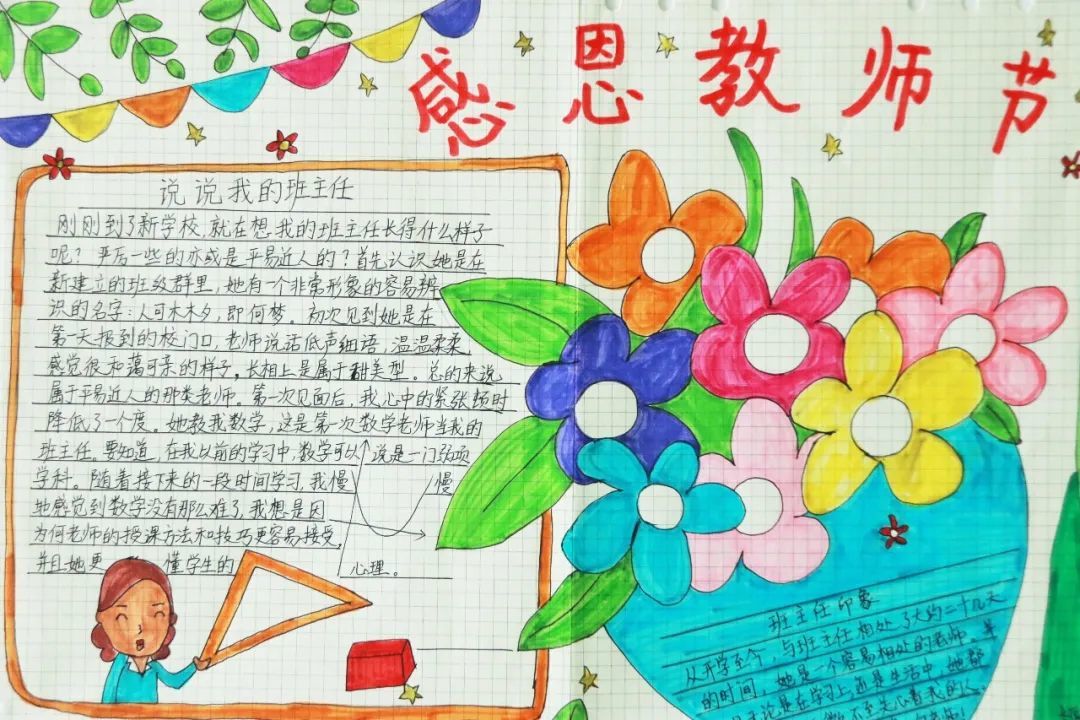 感恩教师节
说说我的班主任
刚刚到了新学校,就在想我的班主任长得什么样子
呢?严厉一些的亦或是平易近人的?首先认识她是在
新建立的班级群里,她有一个非常形象的容易辨
识的名字:人可木木夕,即何梦。初次见到她是在
第一天报到的校门口,老师说话低声细语,温温柔柔,
感觉很和蔼可亲的样子。长相上是属于甜美型。总的来说
属于平易近人的那类老师。第一次见面后,我心中的紧张顿时
降低了一个度。她教我数学,这是第一次数学老师当我的
班主任。要知道,在我以前的学习中,数学可以说是一门弱项
学科。随着接下来的一段时间学习,我慢慢
地感觉到数学没有那么难了,我想是因
为何老师的授课方法和技巧更容易接受,
并且她更懂学生的心理。
班主任印象
从开学至今,与班主任相处了大约二十几天
的时间,她是一个容易相处的老师。
无论是在学习上,还是生活中,她都
无不至关心着我的